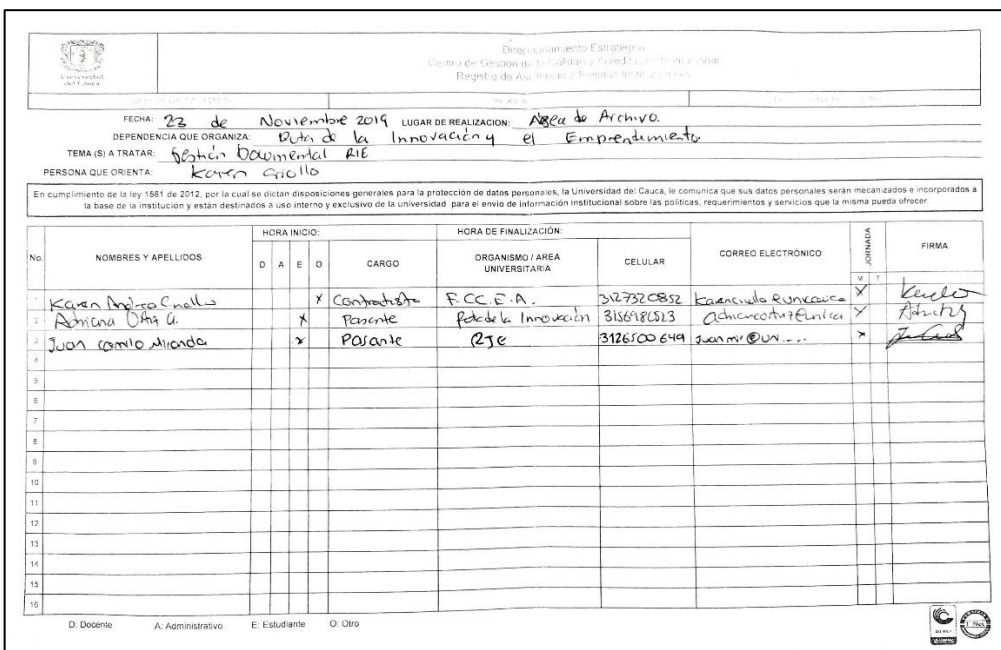 Universidad
del Cauca
Direccionamiento Estratégico
Centro de Gestión de la Calidad y Acreditación Institucional
Registro de Asistencia a Eventos Institucionales
FECHA: 23 de Noviembre 2019 LUGAR DE REALIZACION: Area de Archivo.
DEPENDENCIA QUE ORGANIZA: Ruta de la Innovación y el Emprendimiento
TEMA (S) A TRATAR: Gestión Documental RIE
PERSONA QUE ORIENTA: Karen Criollo
En cumplimiento de la ley 1581 de 2012, por la cual se dictan disposiciones generales para la protección de datos personales, la Universidad del Cauca, le comunica que sus datos personales serán mecanizados e incorporados a
la base de la institución y están destinados a uso interno y exclusivo de la universidad para el envio de información institucional sobre las políticas, requerimientos y servicios que la misma pueda ofrecer.
HORA INICIO: HORA DE FINALIZACIÓN:
No. NOMBRES Y APELLIDOS D A E O CARGO ORGANISMO / AREA UNIVERSITARIA CELULAR CORREO ELECTRÓNICO JORNADA M T FIRMA
1 Karen Andrea Criollo X Contratista F.CC.E.A. 3127320852 X
2 Adriana X Pasante Ruta de la Innovación 3156981523 X
3 Juan camilo Miranda X Pasante RIE 3126500649 X
4
5
6
7
8
9
10
11
12
13
14
15
16
D: Docente A: Administrativo E: Estudiante O: Otro